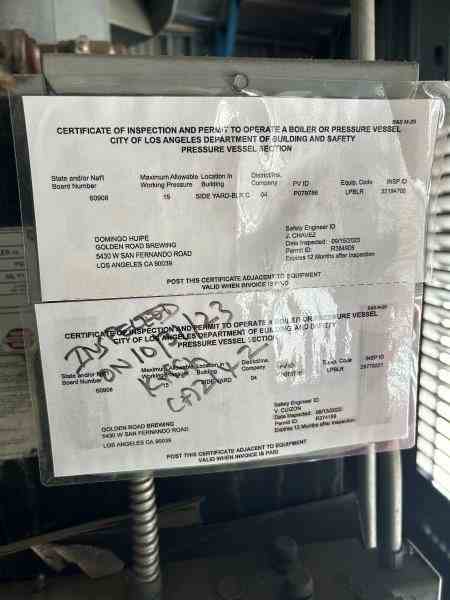 BAS M-29
CERTIFICATE OF INSPECTION AND PERMIT TO OPERATE A BOILER OR PRESSURE VESSEL
CITY OF LOS ANGELES DEPARTMENT OF BUILDING AND SAFETY
PRESSURE VESSEL SECTION
State and/or Nat'l Board Number Maximum Allowable Working Pressure Location in Building District/Ins. Company PV ID Equip. Code INSP ID
60908 15 SIDE YARD-BLK C 04 P079786 LPBLR
DOMINGO HUIPE
GOLDEN ROAD BREWING
5430 W SAN FERNANDO ROAD
LOS ANGELES CA 90039
Safety Engineer ID
J. CHAVEZ
Date Inspected:
Permit ID:
Expires 12 Months after inspection
POST THIS CERTIFICATE ADJACENT TO EQUIPMENT
VALID WHEN INVOICE IS PAID
CERTIFICATE OF INSPECTION AND PERMIT TO OPERATE A BOILER OR PRESSURE VESSEL
CITY OF LOS ANGELES DEPARTMENT OF BUILDING AND SAFETY
PRESSURE VESSEL SECTION
INSPECTED
State and/or Nat'l Board Number Maximum Allowable Working Pressure Location in Building District/Ins. Company PV ID Equip. Code INSP ID
60908 15 SIDE YARD 04 LPBLR
GOLDEN ROAD BREWING
5430 W SAN FERNANDO ROAD
LOS ANGELES CA 90039
Safety Engineer ID
V. CUIZON
Date Inspected:
Permit ID:
Expires 12 Months after inspection
POST THIS CERTIFICATE ADJACENT TO EQUIPMENT
VALID WHEN INVOICE IS PAID